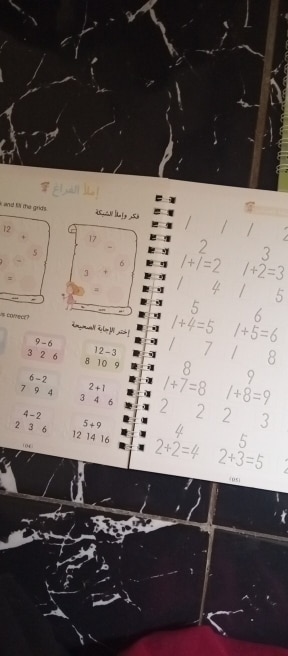 إملأ الفراغ
and fill the grids.
فكر وإملأ الشبكة
12 + 5 - 9 =
17 - 6 + 3 =
is correct?
إختر الإجابة الصحيحة
9-6
3 2 6
12-3
8 10 9
6-2
7 9 4
2+1
3 4 6
4-2
2 3 6
5+9
12 14 16
1 1 1 2
2 3
1+1=2 1+2=3
1 4 1 5
5 6
1+4=5 1+5=6
1 7 1 8
8 9
1+7=8 1+8=9
2 2 2 3
4 5
2+2=4 2+3=5